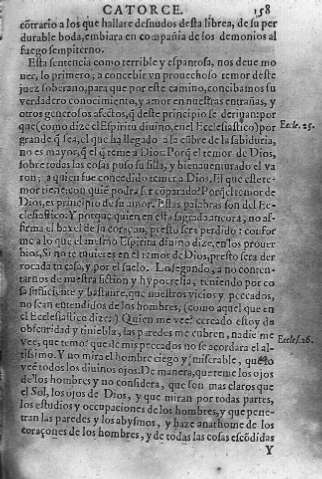 CATORCE. 158
cõtrario a los que hallare desnudos desta librea, de su per
durable boda, embiara en compañia de los demonios al
fuego sempiterno.
Esta sentencia como terrible y espantosa, nos deue mo
uer, lo primero, a concebir vn prouechoso temor deste
juez soberano, para que por este camino, concibamos su
verdadero conocimiento, y amor en nuestras entrañas, y
otros generosos afectos, q̃ deste principio se deriuan: por
que (como dize el Espiritu diuino, en el Ecclesiastico) por
Eccle. 25.
grande q̃ sea, el que ha allegado a la cũbre de la sabiduria,
no es mayor, q̃ el q̃ teme a Dios: Porq̃ el temor de Dios,
sobre todas las cosas puso su silla, y bienauenturado el va
ron, a quien fue concedido temer a Dios. El que este te-
mor tiene, con quiẽ podra ser cõparado? Porq̃ el temor de
Dios, es principio de su amor. Estas palabras son del Ec-
clesiastico: Y porque quien en esta sagrada ancora, no as-
firma el baxel de su coraçon, presto sera perdido: confor
me a lo que el mismo Espiritu diuino dize, en los prouer
bios, Si no te tuuieres en el temor de Dios, presto sera der
rocada tu casa, y por el suelo. Lo segundo, a no conten-
tarnos de nuestra fiction y hypocresia, teniendo por co
sa suficiente y bastante, que nuestros vicios y peccados,
no sean entendidos de los hombres, (como aquel que en
el Ecclesiastico dize:) Quien me vee? cercado estoy de
obscuridad y tiniebla, las paredes me cubren, nadie me
vee, que temo? que de mis peccados no se acordara el al-
Eccles. 26.
tissimo. Y no mira el hombre ciego y miserable, que lo
veẽ todos los diuinos ojos. De manera, que teme los ojos
de los hombres y no considera, que son mas claros que
el Sol, los ojos de Dios, y que miran por todas partes,
los estudios y occupaciones de los hombres, y que pene-
tran las paredes y los abysmos, y haze anathome de los
coraçones de los hombres, y de todas las cosas escõdidas
Y